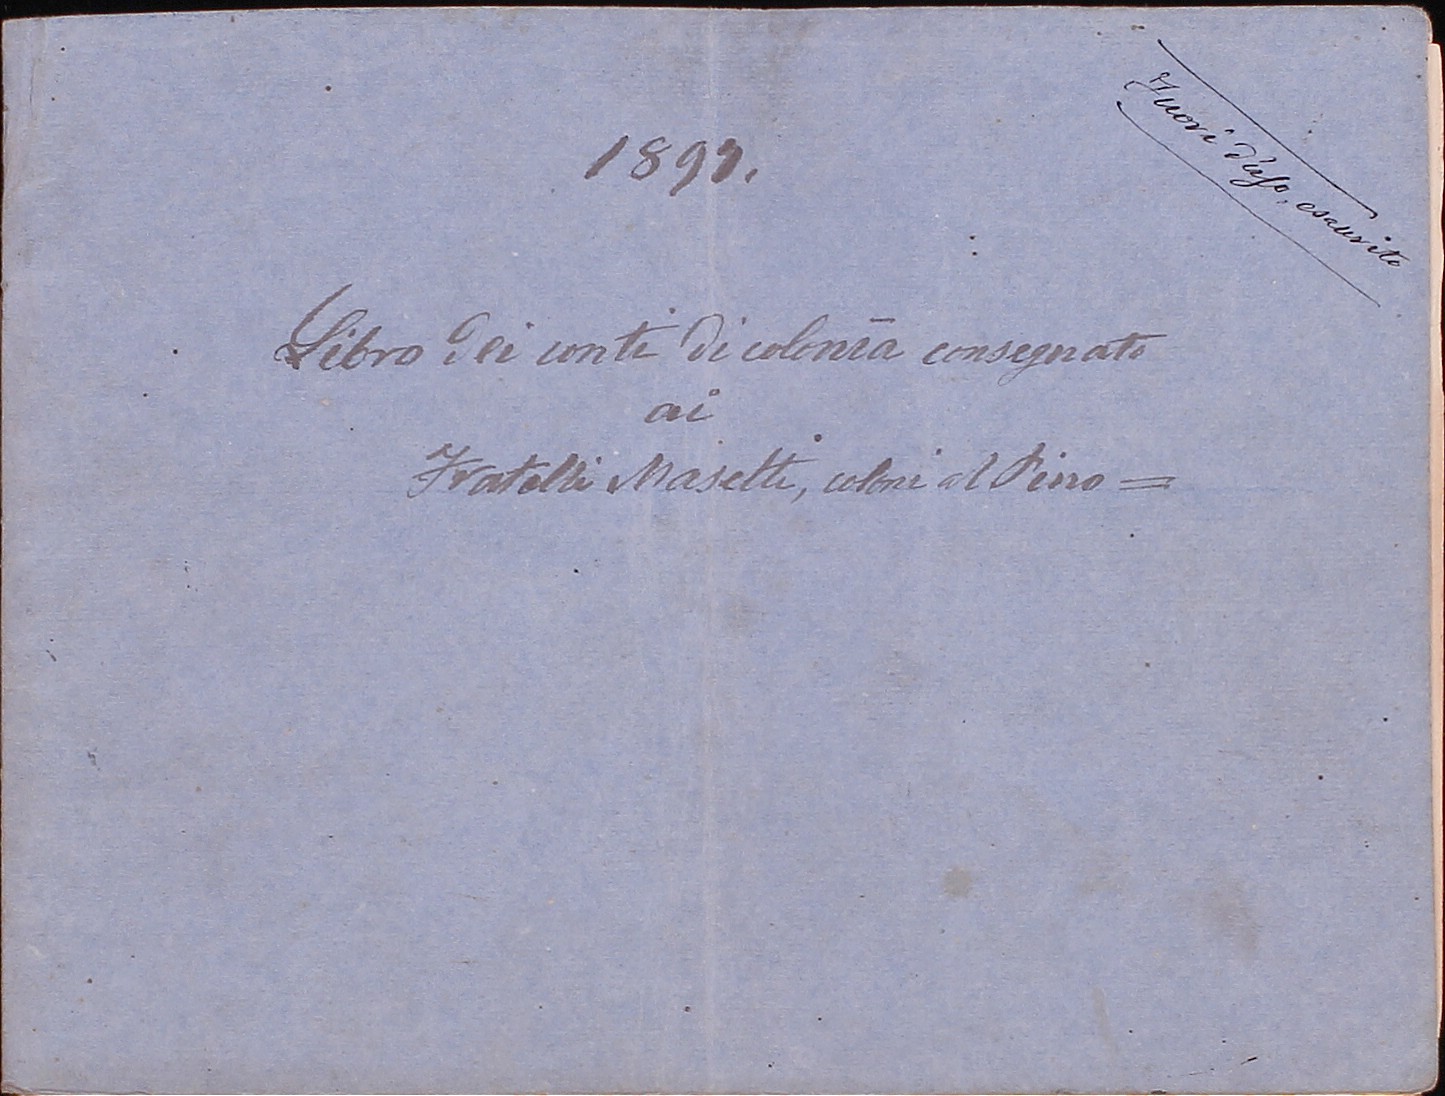 Fuori d'uso, esaurito
1897.
Libro dei conti di colonìa consegnato
ai
Fratelli Masetti, coloni al Pino =